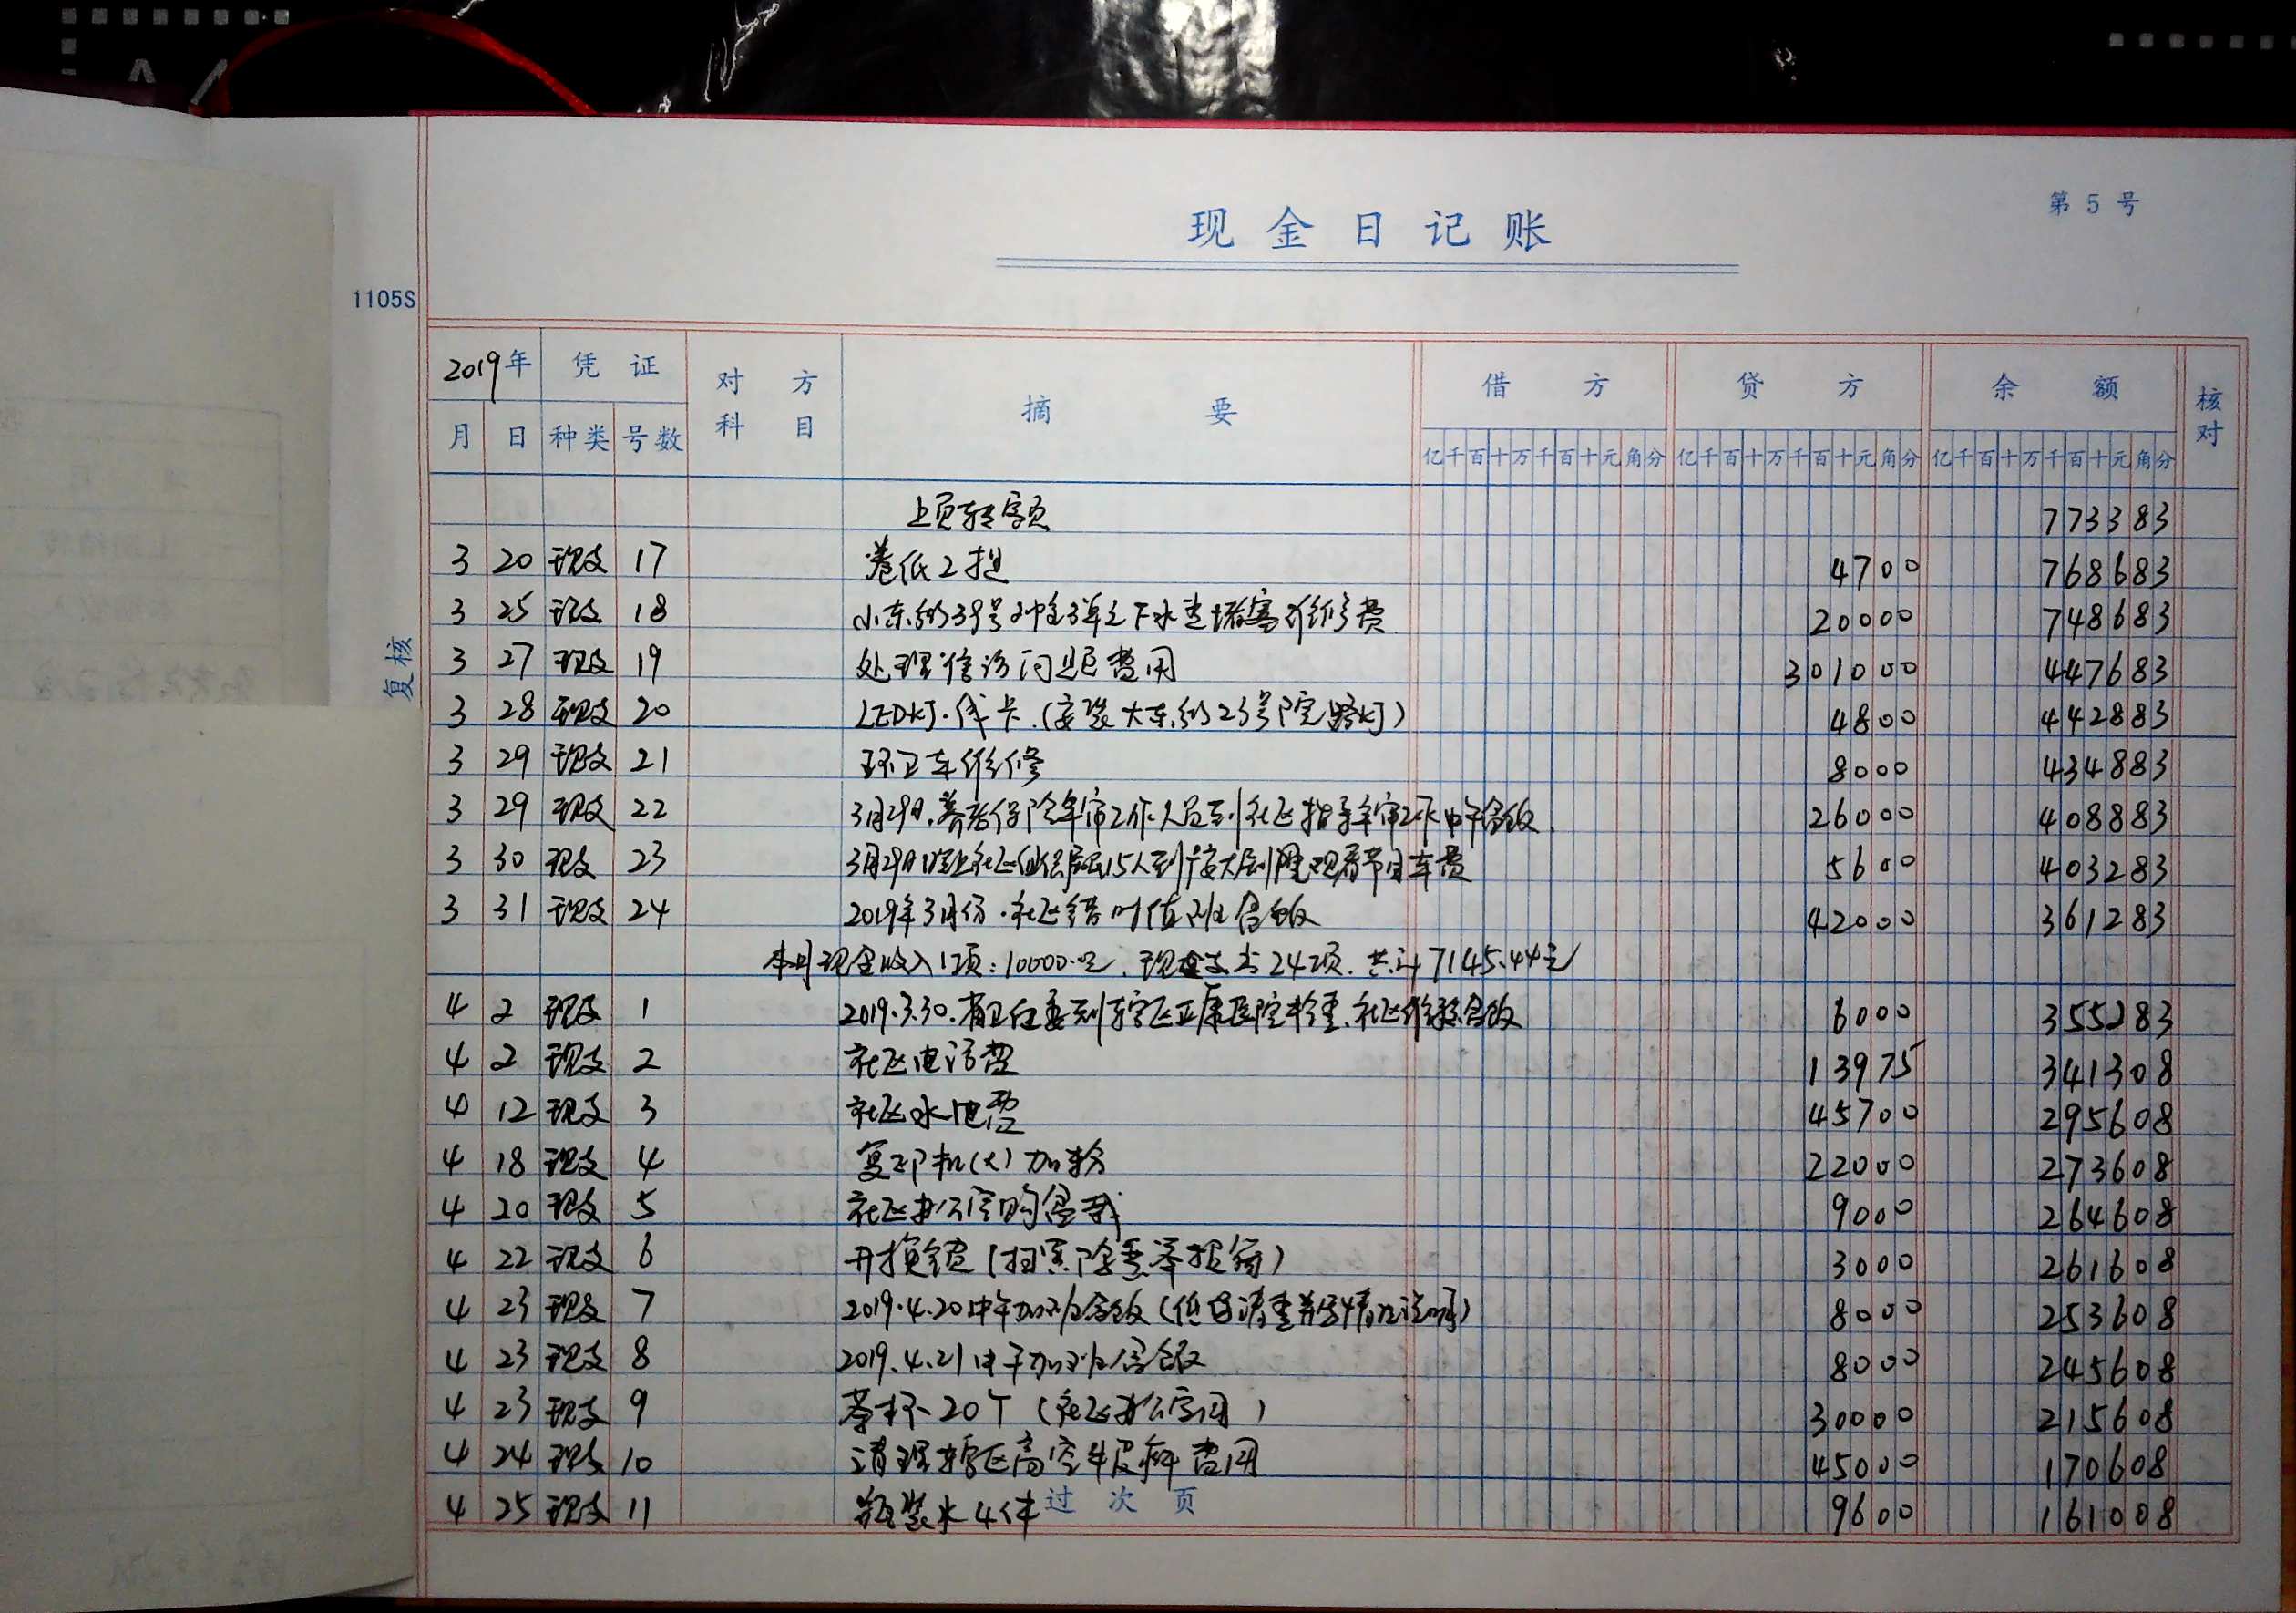 现金日记账
第 5 号
1105S
复核
2019年 凭证 对方科目 摘要 借方 贷方 余额 核对
月 日 种类 号数 亿千百十万千百十元角分 亿千百十万千百十元角分 亿千百十万千百十元角分
上页转字页 773383
3 20 现支 17 卷纸2提 4700 768683
3 25 现支 18 小东街39号冲3单元下水道堵塞维修费 20000 748683
3 27 现支 19 处理信访问题费用 301000 447683
3 28 现支 20 LED灯.线卡.(安装大东街23号院路灯) 4800 442883
3 29 现支 21 环卫车维修 8000 434883
3 29 现支 22 3月29日.养老保险年审工作人员到社区指导年审工作中午合饭. 26000 408883
3 30 现支 23 3月29日晚上社区组织居民15人到大剧院观看节目车费 5600 403283
3 31 现支 24 2019年3月份.社区错时值班合饭 42000 361283
本月现金收入1项:10000元.现金支出24项.共计7145.44元
4 2 现支 1 2019.3.30.省卫健委到辖区正康医院检查.社区合饭 6000 355283
4 2 现支 2 社区电话费 13975 341308
4 12 现支 3 社区水电费 45700 295608
4 18 现支 4 复印机(大)加粉 22000 273608
4 20 现支 5 社区办公室购盆栽 9000 264608
4 22 现支 6 开换锁(扫黑除恶举报箱) 3000 261608
4 23 现支 7 2019.4.20中午加班合饭(低保清查并写情况说明) 8000 253608
4 23 现支 8 2019.4.21中午加班合饭 8000 245608
4 23 现支 9 茶杯20个(社区办公室用) 30000 215608
4 24 现支 10 清理辖区高空牛皮癣费用 45000 170608
4 25 现支 11 瓶装水4件 9600 161008
过次页